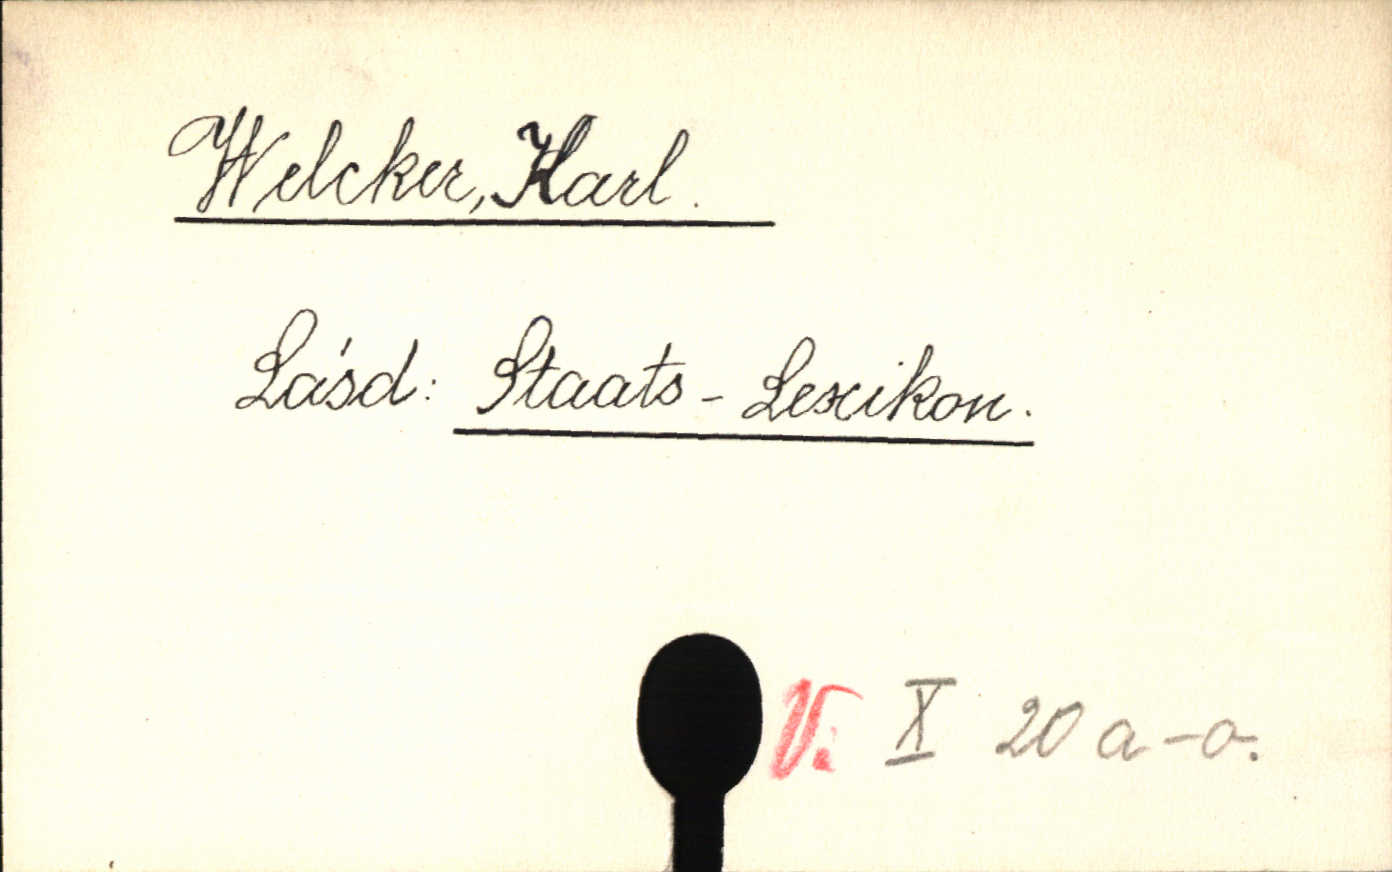 Welcker, Karl.
Lásd: Staats-Lexikon.
V. X 20 a-o.